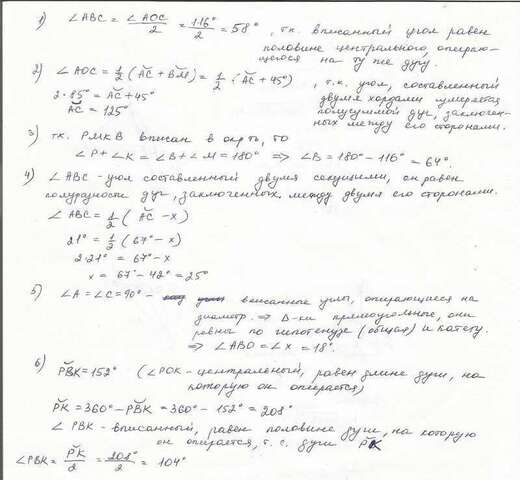 1) ∠ABC = ∠AOC/2 = 116°/2 = 58°, т.к. вписанный угол равен
половине центрального, опираю-
щегося на ту же дугу.
2) ∠AOC = 1/2 (ĂC + B̆M) = 1/2 · (ĂC + 45°), т.к. угол, составленный
2·85° = ĂC + 45°
двумя хордами измеряется
ĂC = 125°
полусуммой дуг, заключен-
ных между его сторонами.
3) тк. PMKB вписан в окр-ть, то
∠P + ∠K = ∠B + ∠M = 180° ⇒ ∠B = 180° − 116° = 64°.
4) ∠ABC - угол составленный двумя секущими, он равен
полуразности дуг, заключенных между двумя его сторонами.
∠ABC = 1/2 (ĂC − x)
21° = 1/2 (67° − x)
2·21° = 67° − x
x = 67° − 42° = 25°
5) ∠A = ∠C = 90° - вписанные углы, опирающиеся на
диаметр. ⇒ Δ-ки прямоугольные, они
равны по гипотенузе (общая) и катету.
⇒ ∠ABO = ∠x = 18°.
6)
PB̆K = 152° (∠POK - центральный, равен длине дуги, на
которую он опирается)
P̆K = 360° − PB̆K = 360° − 152° = 208°
∠PBK - вписанный, равен половине дуги, на которую
он опирается, т.е. дуги P̆K
∠PBK = P̆K/2 = 208°/2 = 104°